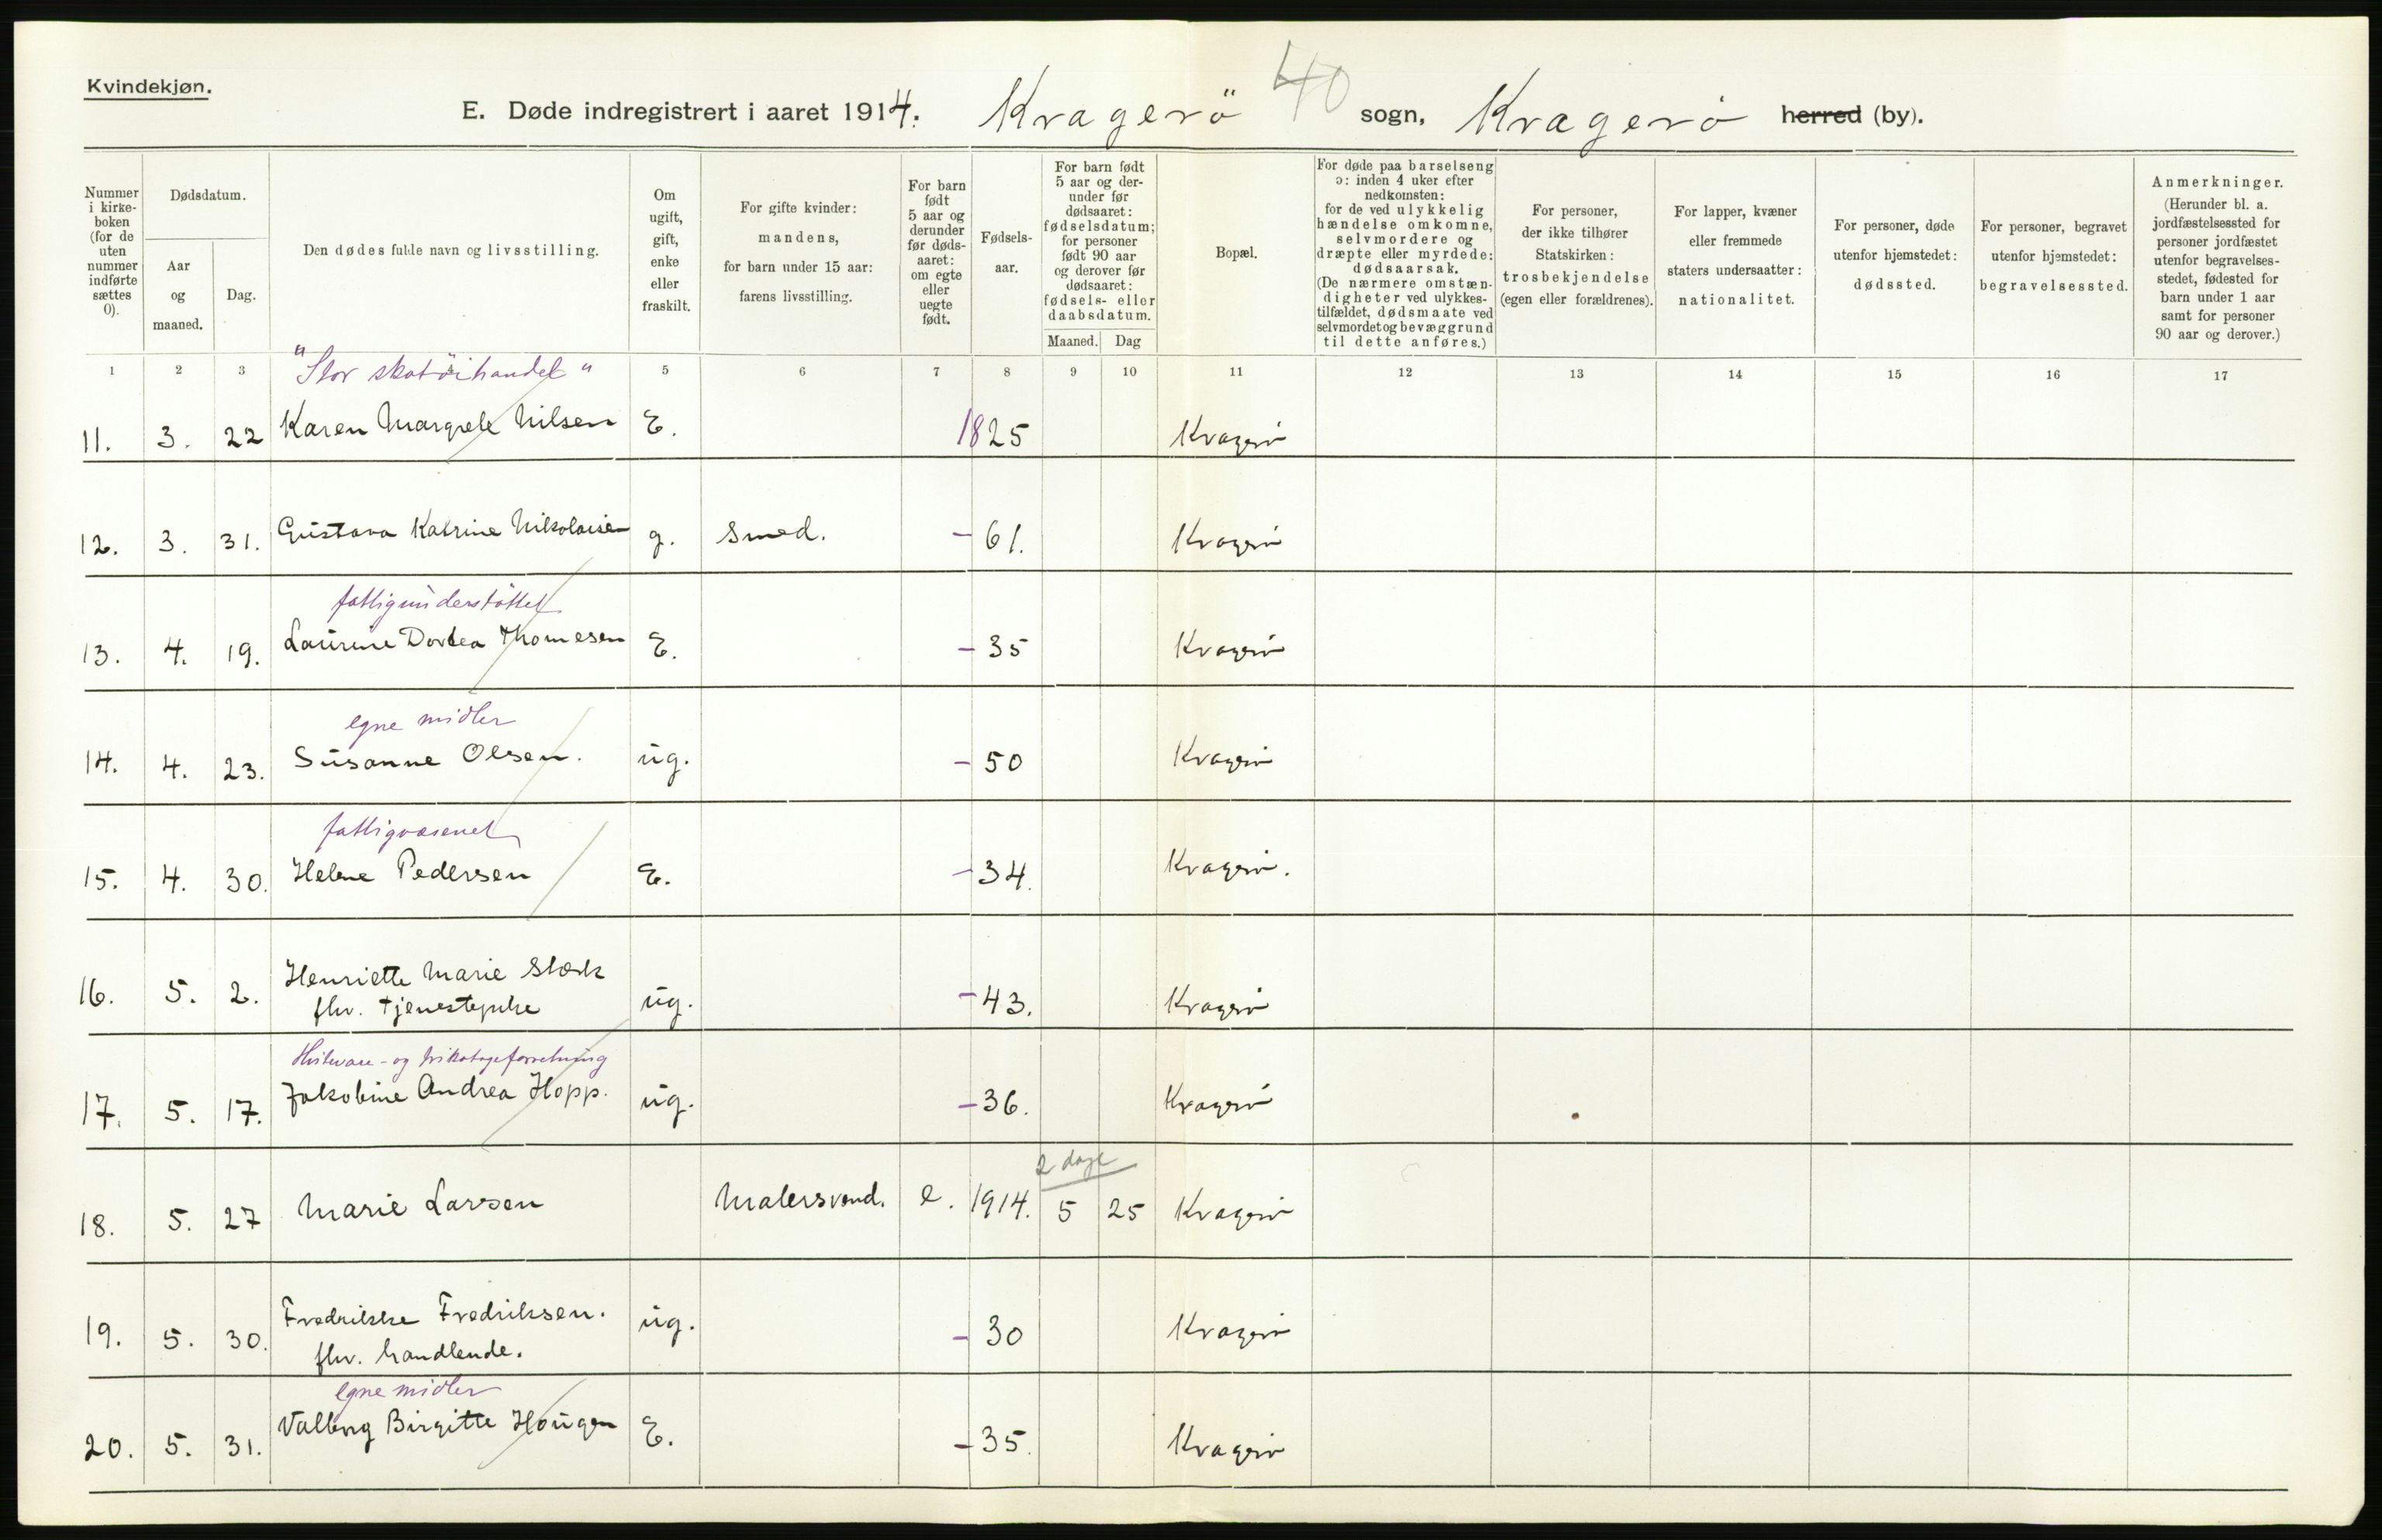 Kvindekjøn.
40
E. Døde indregistrert i aaret 1914. Kragerö sogn, Kragerø herred (by).
Nummer i kirkeboken (for de uten nummer indførte sættes 0).
Dødsdatum.
Aar og maaned.
Dag.
Den dødes fulde navn og livsstilling.
Om ugift, gift, enke eller fraskilt.
For gifte kvinder: mandens, for barn under 15 aar: farens livsstilling.
For barn født 5 aar og derunder før dødsaaret: om egte eller uegte født.
Fødselsaar.
For barn født 5 aar og derunder før dødsaaret: fødselsdatum; for personer født 90 aar og derover før dødsaaret: fødsels- eller daabsdatum.
Maaned.
Dag
Bopæl.
For døde paa barselseng ɔ: inden 4 uker efter nedkomsten: for de ved ulykkelig hændelse omkomne, selvmordere og dræpte eller myrdede: dødsaarsak. (De nærmere omstændigheter ved ulykkestilfældet, dødsmaate ved selvmordet og bevæggrund til dette anføres.)
For personer, der ikke tilhører Statskirken: trosbekjendelse (egen eller forældrenes).
For lapper, kvæner eller fremmede staters undersaatter: nationalitet.
For personer, døde utenfor hjemstedet: dødssted.
For personer, begravet utenfor hjemstedet: begravelsessted.
Anmerkninger. (Herunder bl. a. jordfæstelsessted for personer jordfæstet utenfor begravelsesstedet, fødested for barn under 1 aar samt for personer 90 aar og derover.)
1 2 3 4 5 6 7 8 9 10 11 12 13 14 15 16 17
"Stor skotöihandel"
11. 3. 22 Karen Margrete Nilsen E. 1825 Kragerø
12. 3. 31. Gustava Katrine Nikolaisen g. Smed. - 61. Kragerø
fattigunderstöttet
13. 4. 19. Laurine Dortea Thomesen E. - 35 Kragerø
egne midler
14. 4. 23. Susanne Olsen. ug. - 50 Kragerø
fattigvæsenet
15. 4. 30. Helene Pedersen E. - 34. Kragerø.
16. 5. 2. Henriette Marie Stærk ug. - 43. Kragerø
fhv. tjenestepike
Hvitevare- og trikotageforretning
17. 5. 17. Jakobine Andrea Hopp. ug. - 36. Kragerø
2 dage
18. 5. 27 Marie Larsen Malersvend. e. 1914. 5 25 Kragerø
19. 5. 30. Fredrikke Fredriksen. ug. - 30 Kragerø
fhv. handlende.
egne midler
20. 5. 31. Valborg Birgitte Hougen E. - 35. Kragerø